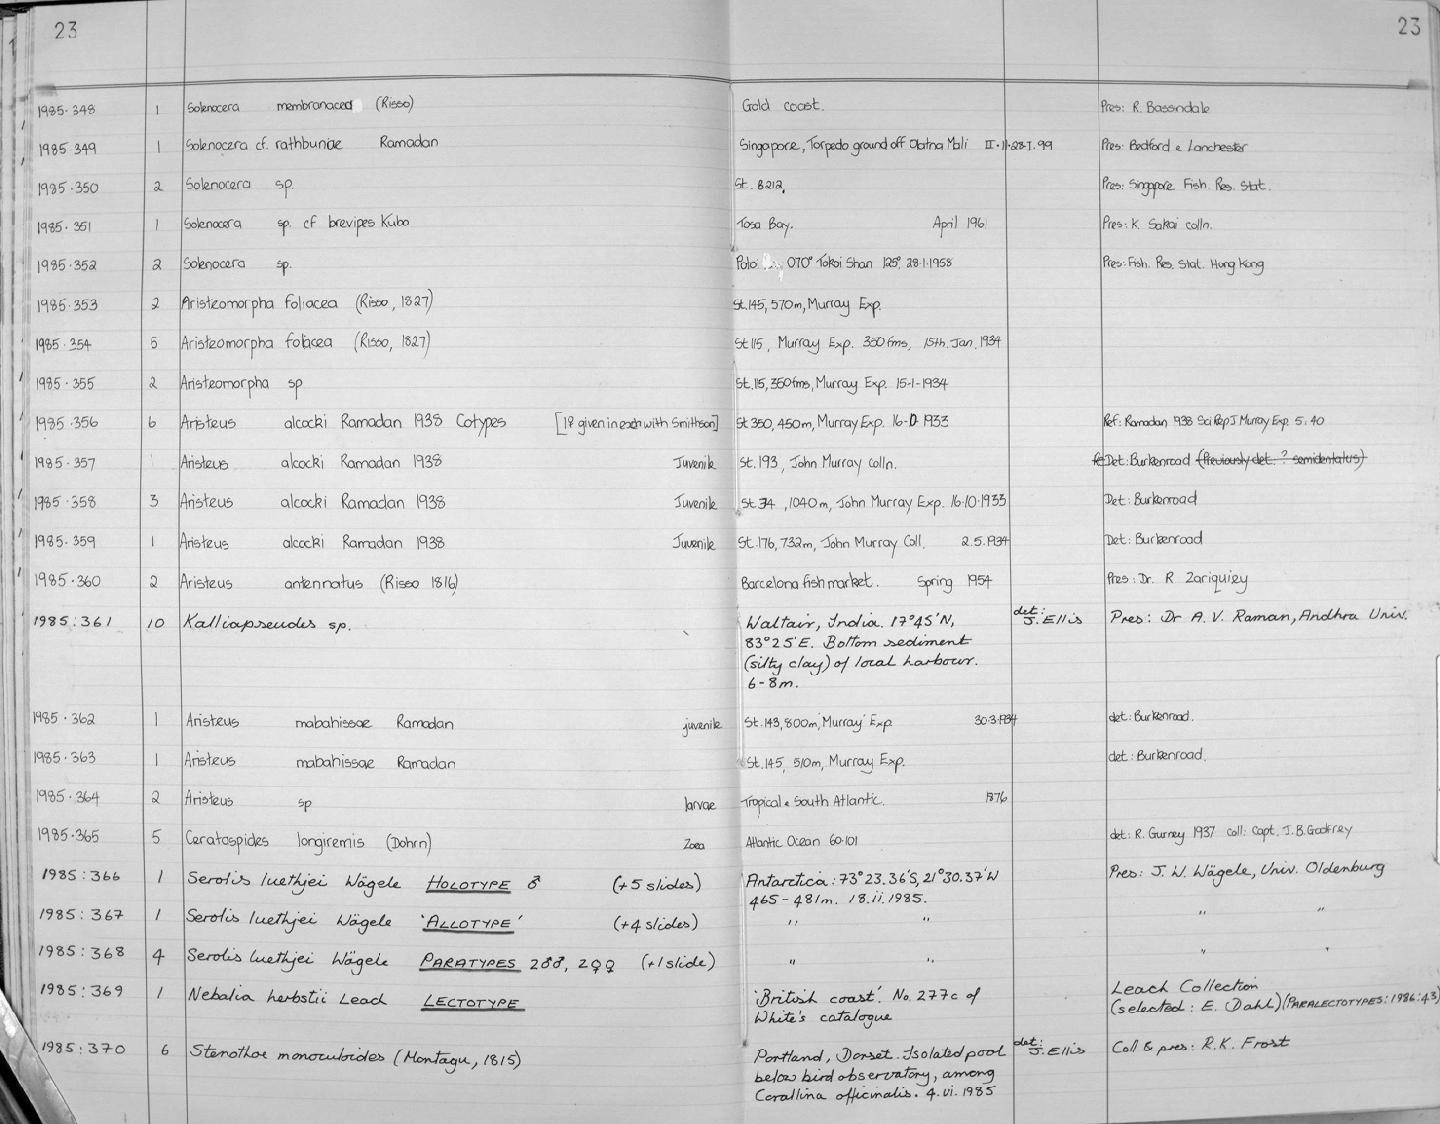 23 23
1985·348 1 Solenocera membranacea (Risso) Gold coast. Pres: R. Bassndale
1985·349 1 Solenocera cf. rathbunae Ramadan Singapore, Torpedo ground off Mali Pres: Bedford & Lanchester
1985·350 2 Solenocera sp. St. 8212, Pres: Singapore Fish. Res. Stat.
1985·351 1 Solenocera sp. cf brevipes Kubo Tosa Bay. April 196 Pres: K. Sakai colln.
1985·352 2 Solenocera sp. 070° Shan 125°, 28·1·1958 Pres: Fish. Res. Stat. Hong Kong
1985·353 2 Aristeomorpha foliacea (Risso, 1827) St.145, 570m, Murray Exp.
1985·354 5 Aristeomorpha foliacea (Risso, 1827) St 115, Murray Exp. 350 fms, 15th. Jan. 1934
1985·355 2 Aristeomorpha sp St. 115, 350fms, Murray Exp. 15-1-1934
1985·356 6 Aristeus alcocki Ramadan 1938 Cotypes [1♀ given in exch with Smithson] St 350, 450m, Murray Exp. 16-D-1933 Ref: Ramadan 1938 Sci Rep J Murray Exp. 5: 40
1985·357 Aristeus alcocki Ramadan 1938 Juvenile St. 193, John Murray colln. Det: Burkenroad (Previously det. ? semidentatus)
1985·358 3 Aristeus alcocki Ramadan 1938 Juvenile St 34 , 1040m, John Murray Exp. 16·10·1933 Det: Burkenroad
1985·359 1 Aristeus alcocki Ramadan 1938 Juvenile St. 176, 732m, John Murray Coll. 2.5.1934 Det: Burkenroad
1985·360 2 Aristeus antennatus (Risso 1816) Barcelona fish market. Spring 1954 Pres: Dr. R Zariquiey
1985:361 10 Kalliapseudes sp. Waltair, India. 17°45'N, det: J. Ellis Pres: Dr A. V. Raman, Andhra Univ.
83°25'E. Bottom sediment
(silty clay) of local harbour.
6-8m.
1985·362 1 Aristeus mabahissae Ramadan juvenile St. 143, 800m, 'Murray' Exp 30·3·1934 det: Burkenroad.
1985·363 1 Aristeus mabahissae Ramadan St. 145, 510m, Murray Exp. det: Burkenroad.
1985·364 2 Aristeus sp larvae Tropical & South Atlantic. 1876
1985·365 5 Cerataspides longiremis (Dohrn) Zoea Atlantic Ocean 60·101 det: R. Gurney 1937 coll: Capt. J. B. Godfrey
1985:366 1 Serolis luethjei Wägele HOLOTYPE ♂ (+5 slides) Antarctica: 73°23.36'S, 21°30.37'W Pres: J. W. Wägele, Univ. Oldenburg
465-481m. 18.ii.1985.
1985:367 1 Serolis luethjei Wägele 'ALLOTYPE' (+4 slides) " " " "
1985:368 4 Serolis luethjei Wägele PARATYPES 2♂♂, 2♀♀ (+1 slide) " " " "
1985:369 1 Nebalia herbstii Leach LECTOTYPE 'British coast'. No. 277c of Leach Collection
White's catalogue (selected: E. Dahl) (PARALECTOTYPES: 1986:43)
1985:370 6 Stenothoe monoculoides (Montagu, 1815) Portland, Dorset. Isolated pool det: J. Ellis Coll & pres: R.K. Frost
below bird observatory, among
Corallina officinalis. 4.vi.1985